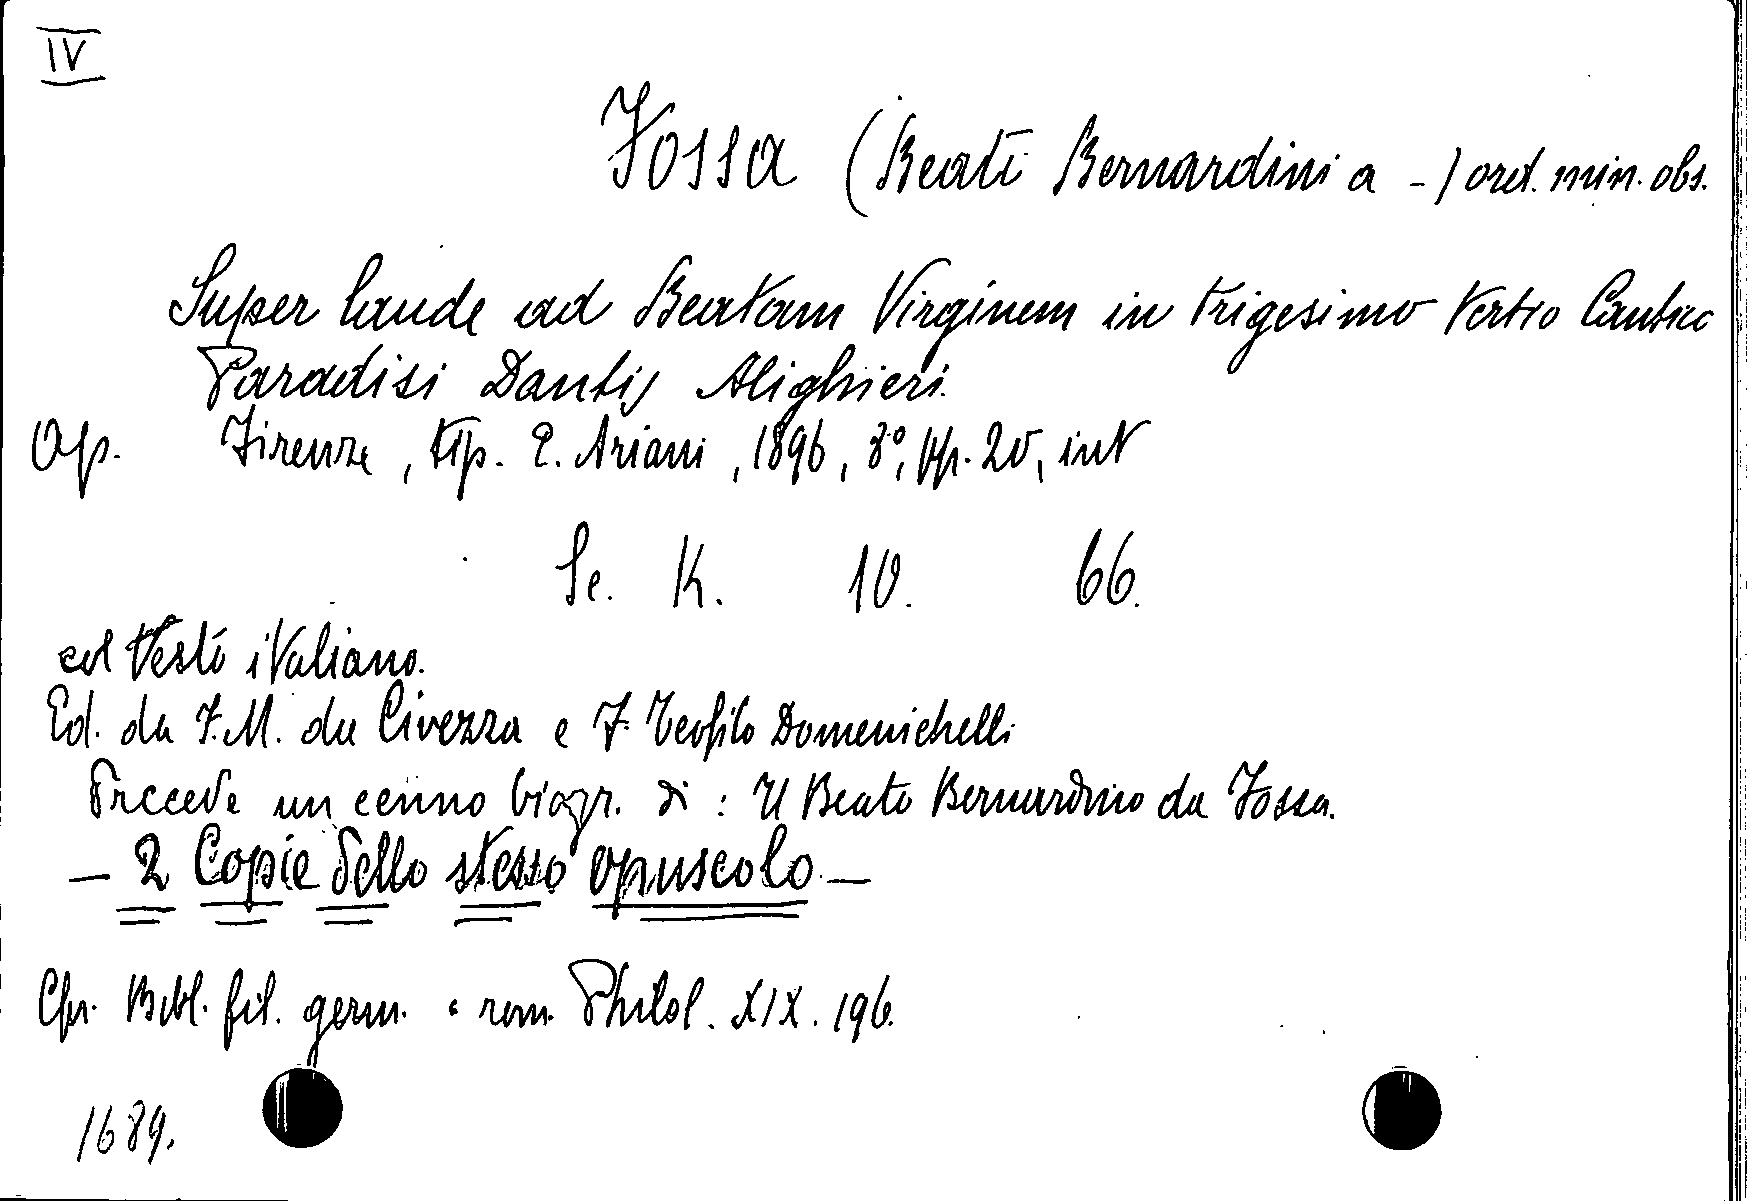 IV
Fossa (Beati Bernardini a -) ord. min. obs.
Super laude ad Beatam Virginem in trigesimo tertio Cantico
Paradisi Dantis Alighieri.
Op. Firenze, tip. E. Ariani, 1896, 8°, pp. 20, int
Se. K. 10. 66.
col testo italiano.
Ed. da F. M. da Civezza e F. Teofilo Domenichelli
Precede un cenno biogr. di: Il Beato Bernardino da Fossa.
— 2 Copie dello stesso opuscolo —
Cfr. germ. rom. Philol. XIX. 196.
1689.